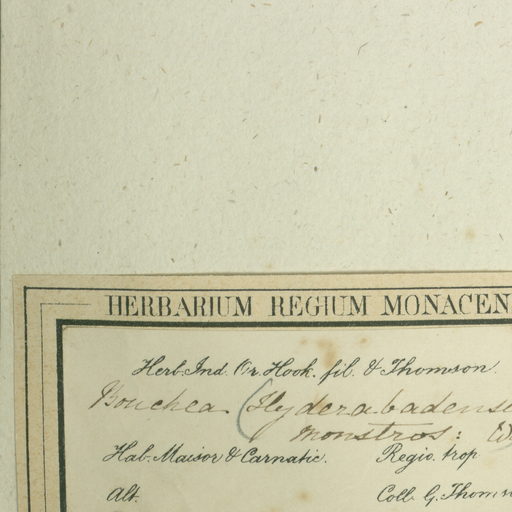 HERBARIUM REGIUM MONACEN
Herb. Ind. Or. Hook. fil. & Thomson.
Bouchea (Hyderabadense
monstros: (W
Hab. Maisor & Carnatic. Regio. trop
Alt. Coll. G. Thomso